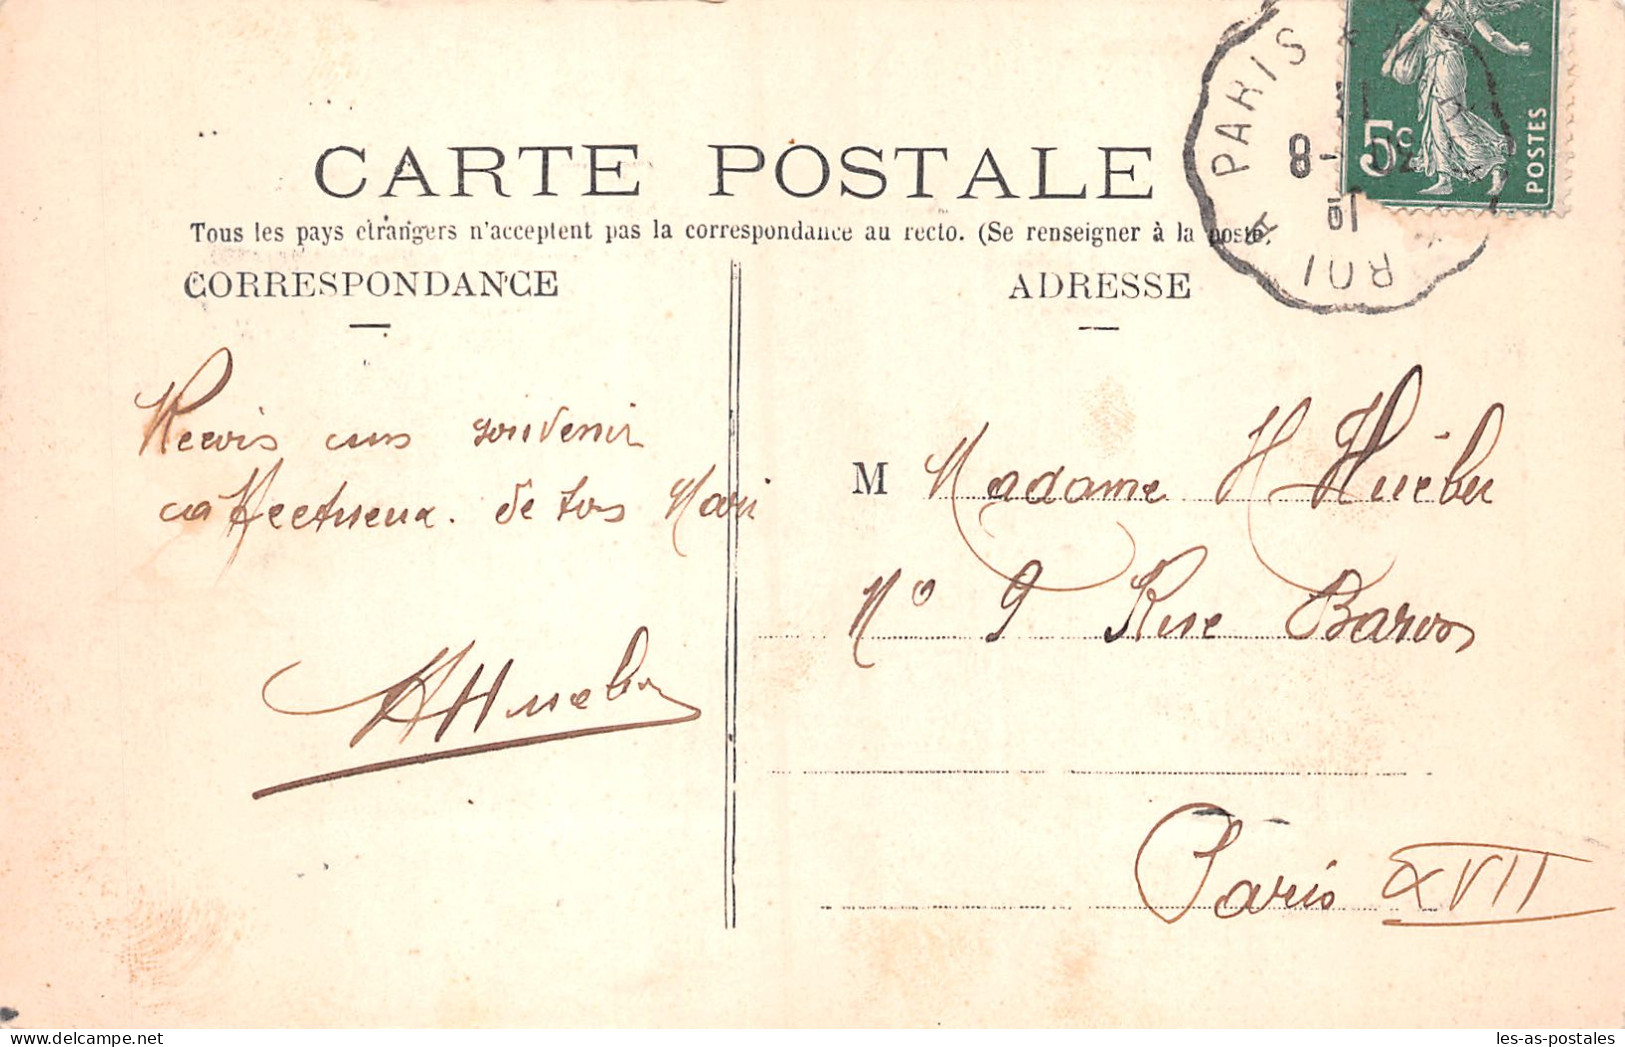 CARTE POSTALE
Tous les pays étrangers n'acceptent pas la correspondance au recto. (Se renseigner à la poste)
CORRESPONDANCE
ADRESSE
Recois un souvenir
affectueux. de ton Mari
HHueber
M Madame H Hueber
N° 9 Rue Baron
Paris XVII
5c
POSTES
ROI A PARIS
8 - 12
10
les-as-postales